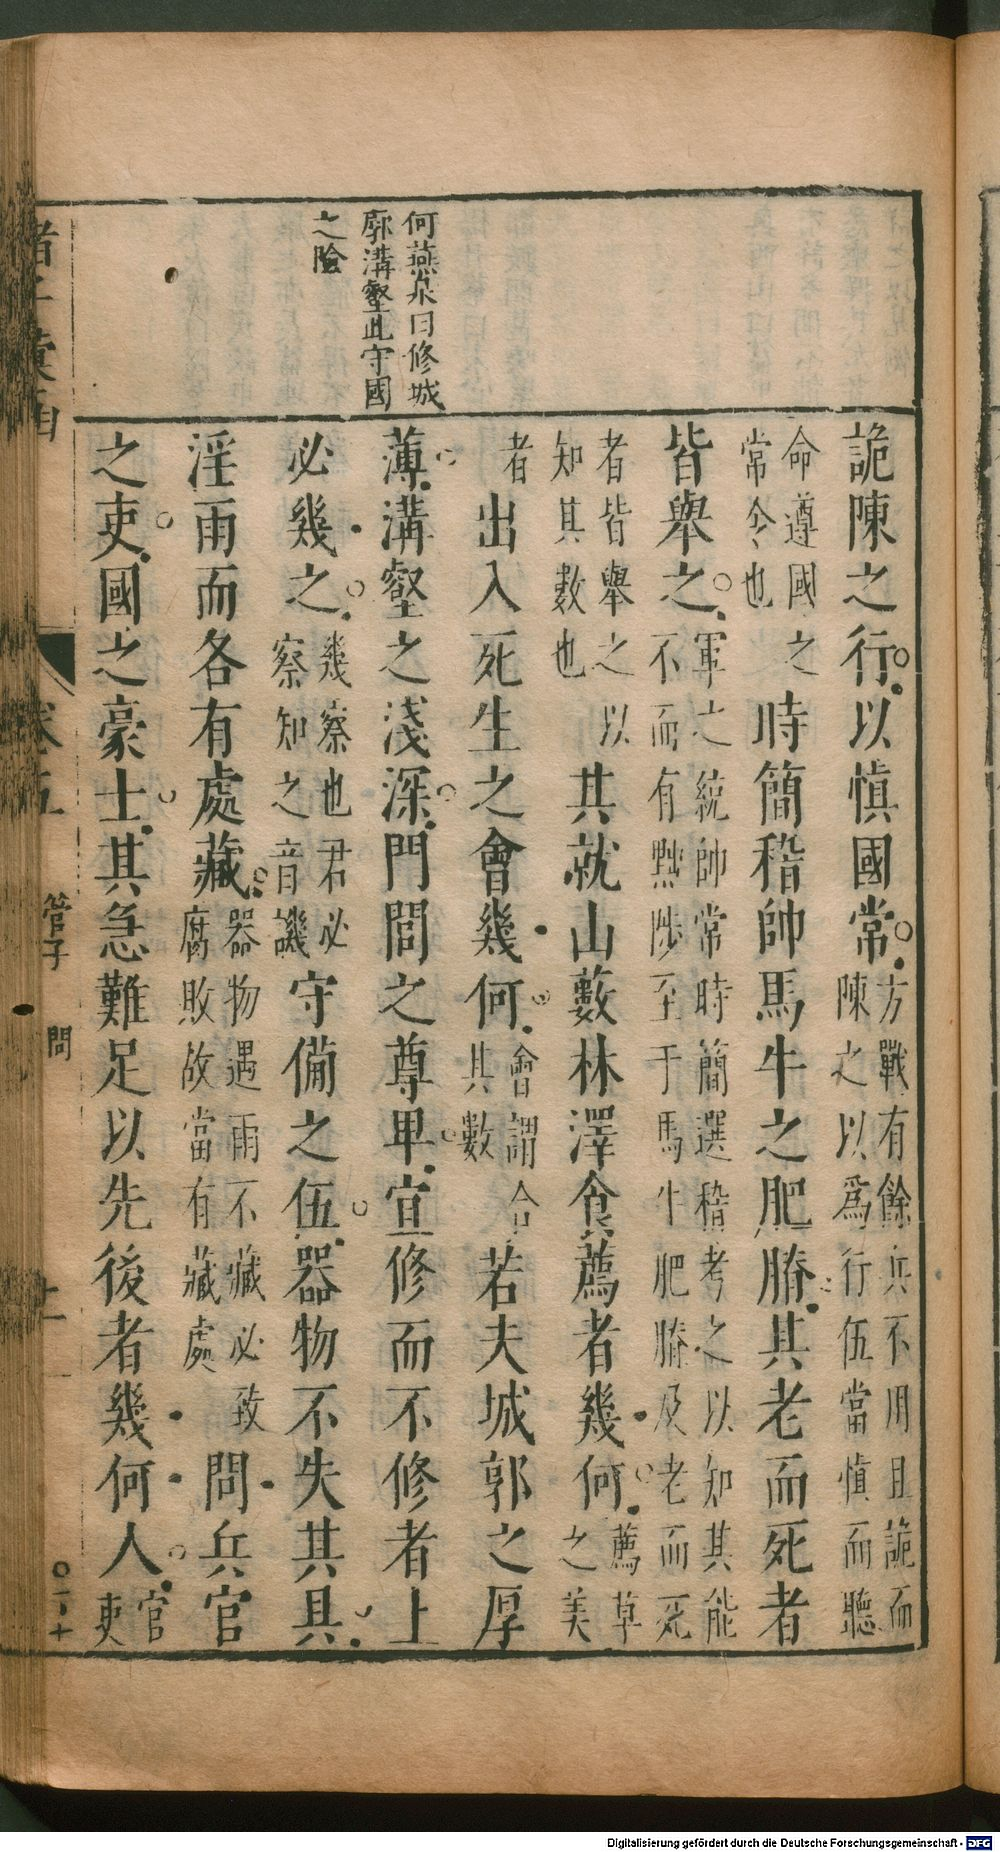 何燕泉曰修城
郭溝壑此守國
之險
詭陳之行以慎國常方戰有餘兵不用且詭而陳之以爲行伍當慎而聽
命遵國之常令也時簡稽帥馬牛之肥膌其老而死者
皆舉之軍之統帥常時簡選稽考之以知其能不而有黜陟至于馬牛肥膌及老而死
者皆舉之以知其數也其就山藪林澤食薦者幾何薦草之美
者出入死生之會幾何會謂合其數若夫城郭之厚
薄溝壑之淺深門閭之尊卑宜修而不修者上
必幾之幾察也君必察知之音譏守備之伍器物不失其具
淫雨而各有處藏器物遇雨不藏必致腐敗故當有藏處問兵官
之吏國之豪士其急難足以先後者幾何人官吏
卷五 管子 問
Digitalisierung gefördert durch die Deutsche Forschungsgemeinschaft - DFG